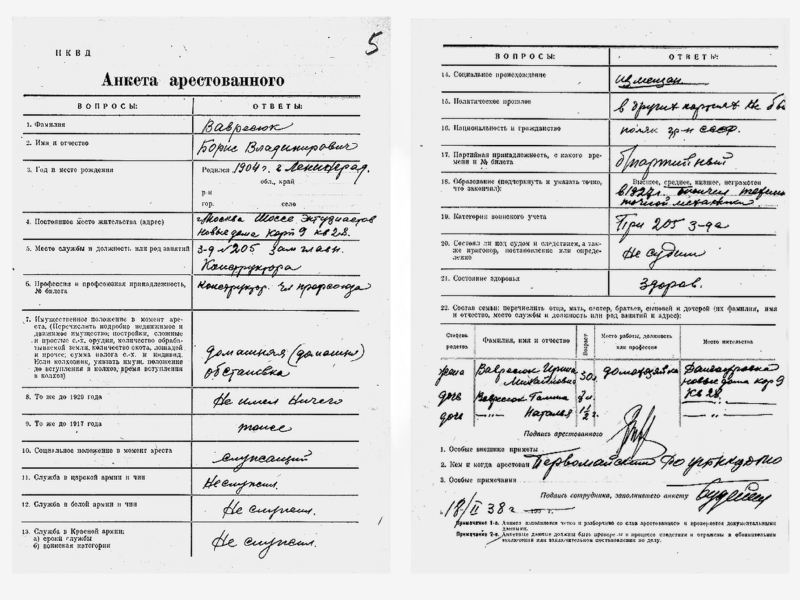 НКВД
5
Анкета арестованного
ВОПРОСЫ: ОТВЕТЫ:
1. Фамилия Вавресюк
2. Имя и отчество Борис Владимирович
3. Год и место рождения Родился 1904 г. г. Ленинград.
обл., край
р-н
гор. село
4. Постоянное место жительства (адрес) г. Москва Шоссе Энтузиастов
Новые дома корп 9 кв 28.
5. Место службы и должность или род занятий 3-д № 205 Зам главн.
Конструктора
6. Профессия и профсоюзная принадлежность, № билета Конструктор. чл профсоюза
7. Имущественное положение в момент аре-
ста. (Перечислить подробно недвижимое и
движимое имущество; постройки, сложные
и простые с.-х. орудия, количество обраба-
тываемой земли, количество скота, лошадей
и прочее; сумма налога с.-х. и индивид.
Если колхозник, указать имущ. положение
до вступления в колхоз, время вступления
в колхоз)
домашняя (домашн)
обстановка
8. То же до 1929 года Не имел ничего
9. То же до 1917 года тоже
10. Социальное положение в момент ареста служащий
11. Служба в царской армии и чин Не служил.
12. Служба в белой армии и чин Не служил.
13. Служба в Красной армии:
а) сроки службы
б) воинская категория
Не служил.
ВОПРОСЫ: ОТВЕТЫ:
14. Социальное происхождение из мещан
15. Политическое прошлое в других партиях не бы
16. Национальность и гражданство поляк гр-н СССР.
17. Партийная принадлежность, с какого вре-
мени и № билета б/партийный
18. Образование (подчеркнуть и указать точно,
что закончил): Высшее, среднее, низшее, неграмотен
в 1927 г. окончил техник
точной механики
19. Категория воинского учета При 205 з-де
20. Состоял ли под судом и следствием, а так-
же приговор, постановление или опреде-
ление Не судим
21. Состояние здоровья Здоров.
22. Состав семьи: перечислить отца, мать, сестер, братьев, сыновей и дочерей (их фамилия, имя
и отчество, место службы и должность или род занятий и адрес):
Степень родства Фамилия, имя и отчество Возраст Место работы, должность или профессия Место жительства
жена Вавресюк Ирина 30 л. домохозяйка
Михайловна Новые дома кор 9
дочь Вавресюк Галина Кв 28.
дочь —"— Наталья 1½ г. —"—
Подпись арестованного
1. Особые внешние приметы
2. Кем и когда арестован Первомайским РО УГБ НКВД МО
3. Особые примечания
Подпись сотрудника, заполнившего анкету
18/II 38 г.
Примечание 1-е. Анкета заполняется четко и разборчиво со слов арестованного и проверяется документальными
данными.
Примечание 2-е. Анкетные данные должны быть проверены в процессе следствия и отражены в обвинительном
заключении или заключительном постановлении по делу.